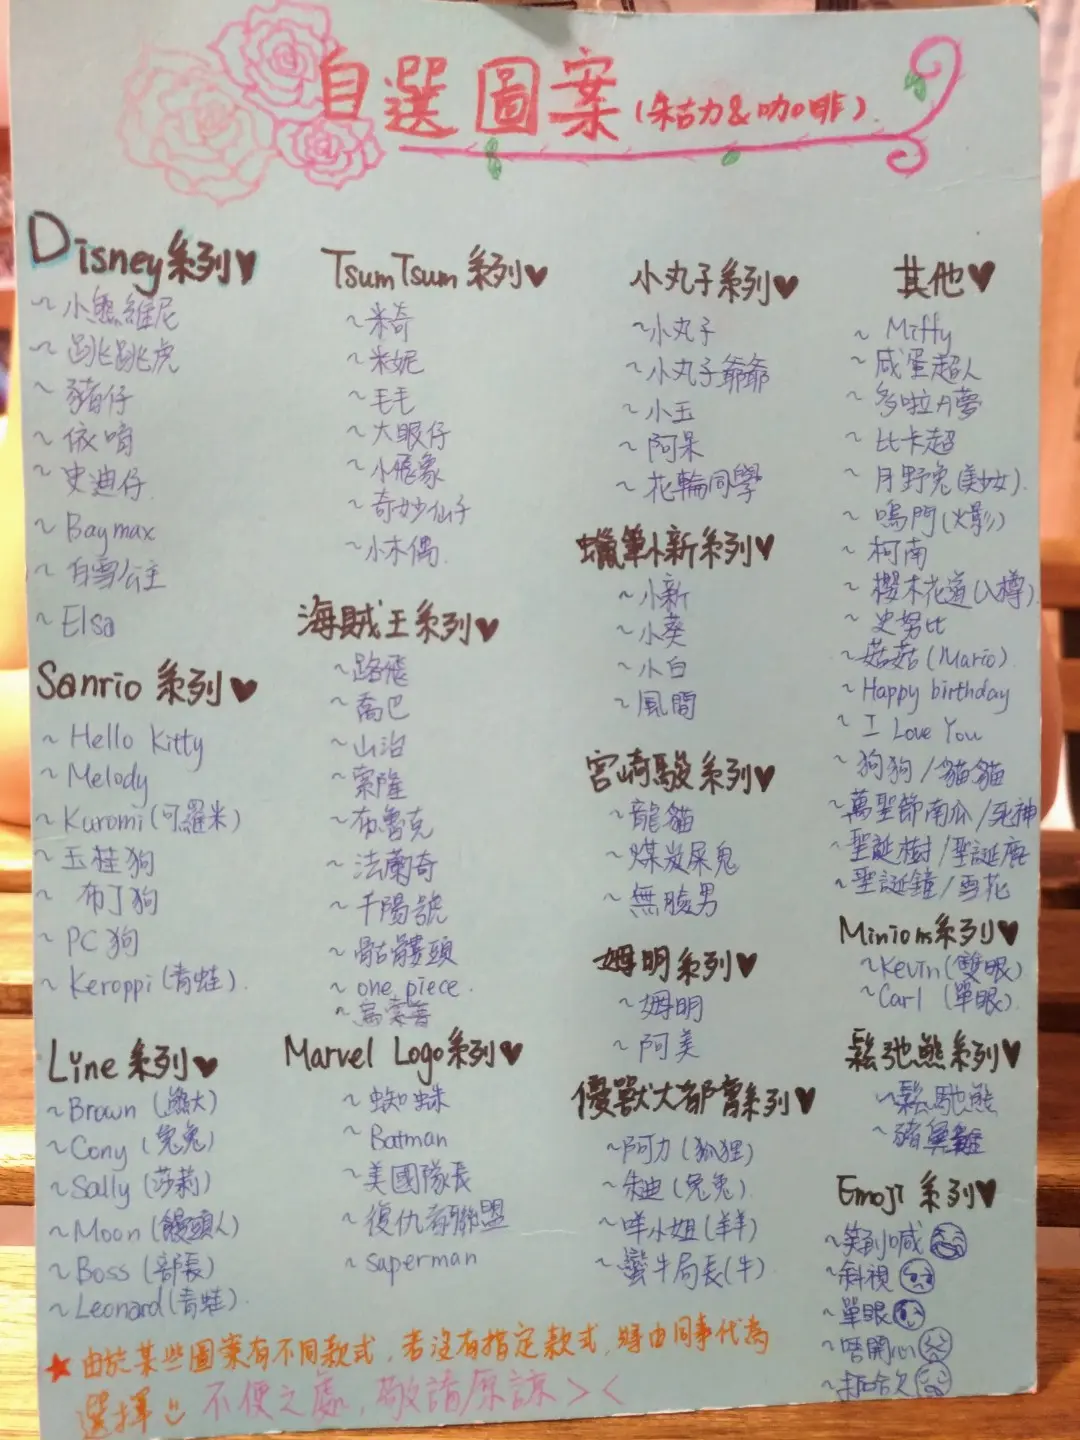 自選圖案(朱古力&咖啡)
Disney系列♥
~小熊維尼
~跳跳虎
~豬仔
~依唷
~史迪仔
~Baymax
~白雪公主
~Elsa
Sanrio系列♥
~Hello Kitty
~Melody
~Kuromi(可羅米)
~玉桂狗
~布丁狗
~PC狗
~Keroppi(青蛙)
Line系列♥
~Brown(熊大)
~Cony(兔兔)
~Sally(莎莉)
~Moon(饅頭人)
~Boss(部長)
~Leonard(青蛙)
TsumTsum系列♥
~米奇
~米妮
~毛毛
~大眼仔
~小飛象
~奇妙仙子
~小木偶
海賊王系列♥
~路飛
~喬巴
~山治
~索隆
~布魯克
~法蘭奇
~千陽號
~骷髏頭
~one piece
Marvel Logo系列♥
~蜘蛛
~Batman
~美國隊長
~復仇者聯盟
~saperman
小丸子系列♥
~小丸子
~小丸子爺爺
~小玉
~阿呆
~花輪同學
蠟筆小新系列♥
~小新
~小葵
~小白
~風間
宮崎駿系列♥
~龍貓
~煤炭屎鬼
~無臉男
姆明系列♥
~姆明
~阿美
優獸大都會系列♥
~阿力(狐狸)
~朱迪(兔兔)
~咩小姐(羊羊)
~蠻牛局長(牛)
其他♥
~Miffy
~咸蛋超人
~多啦A夢
~比卡超
~月野兔(美少女)
~鳴門(火影)
~柯南
~櫻木花道(入樽)
~史努比
~菇菇(Mario)
~Happy birthday
~I Love You
~狗狗/貓貓
~萬聖節南瓜/死神
~聖誕樹/聖誕鹿
~聖誕鐘/雪花
Minions系列♥
~Kevin(雙眼)
~Carl(單眼)
鬆弛熊系列♥
~鬆馳熊
~豬鼻雞
Emoji系列♥
~笑到喊
~斜視
~單眼
~唔開心
~打哈欠
★由於某些圖案有不同款式,若沒有指定款式,將由同事代為
選擇 不便之處,敬請原諒><